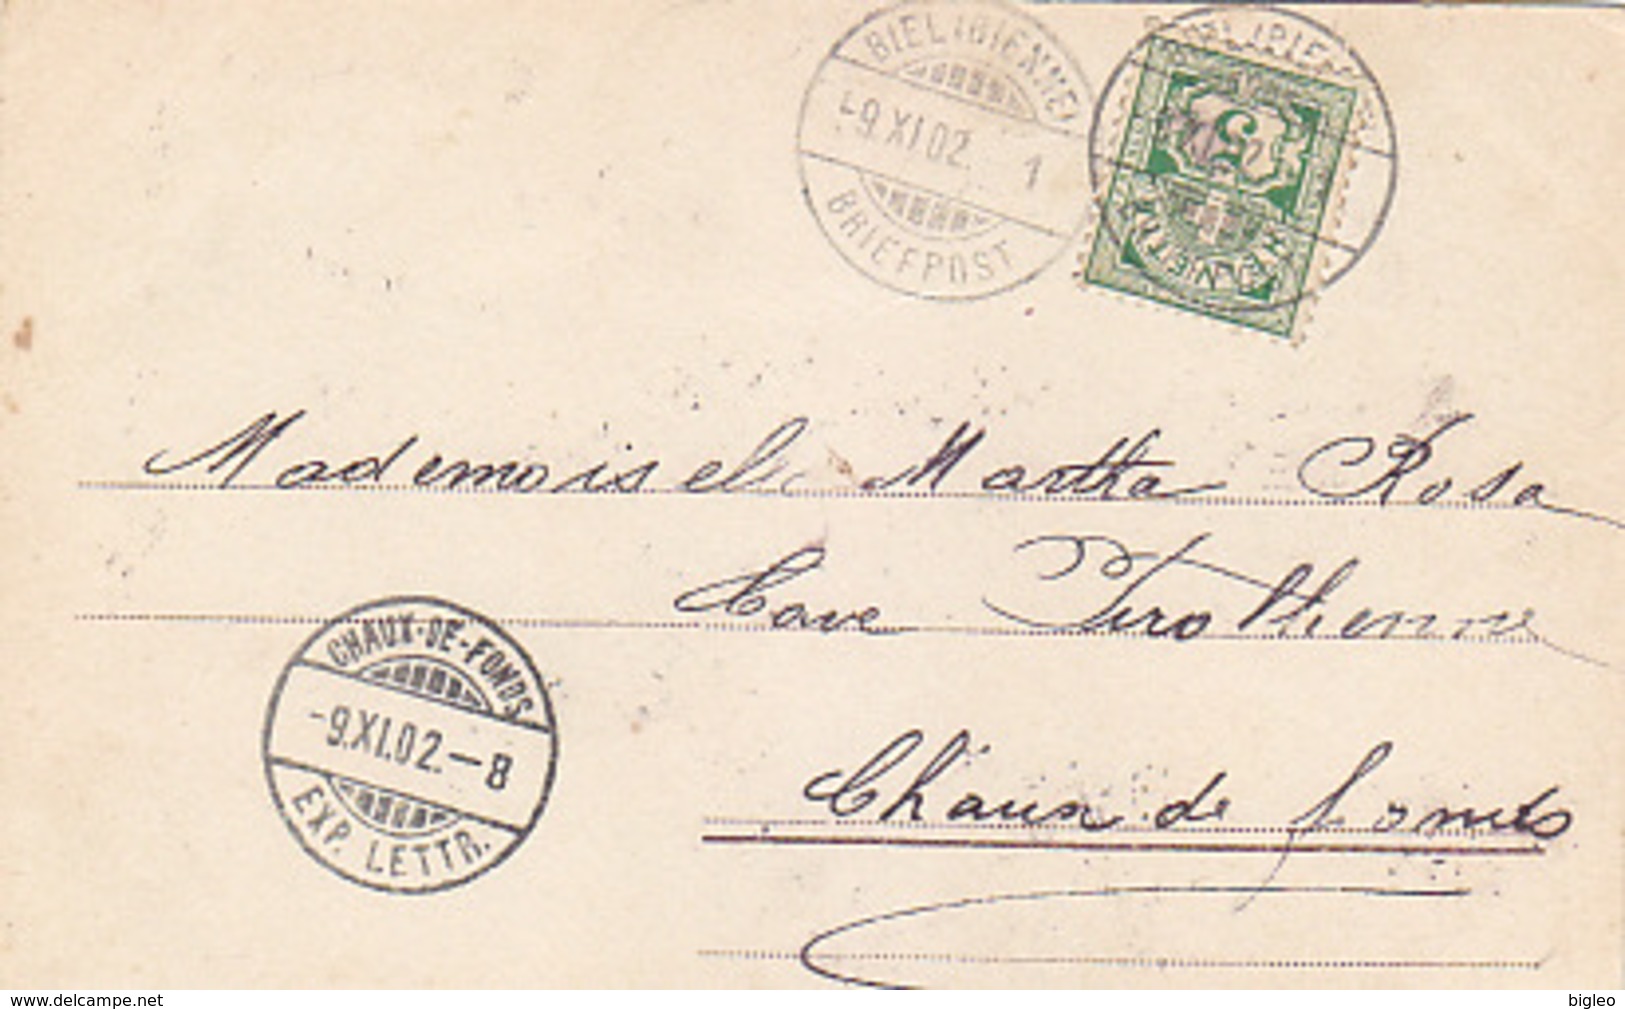 BIEL (BIENNE)
-9.XI.02. 1
BRIEFPOST
5
HELVETIA
Mademoiselle Martha Rosa
Cave Tirolienne
Chaux de fonds
CHAUX-DE-FONDS
-9.XI.02.-8
EXP. LETTR.
www.delcampe.net
bigleo